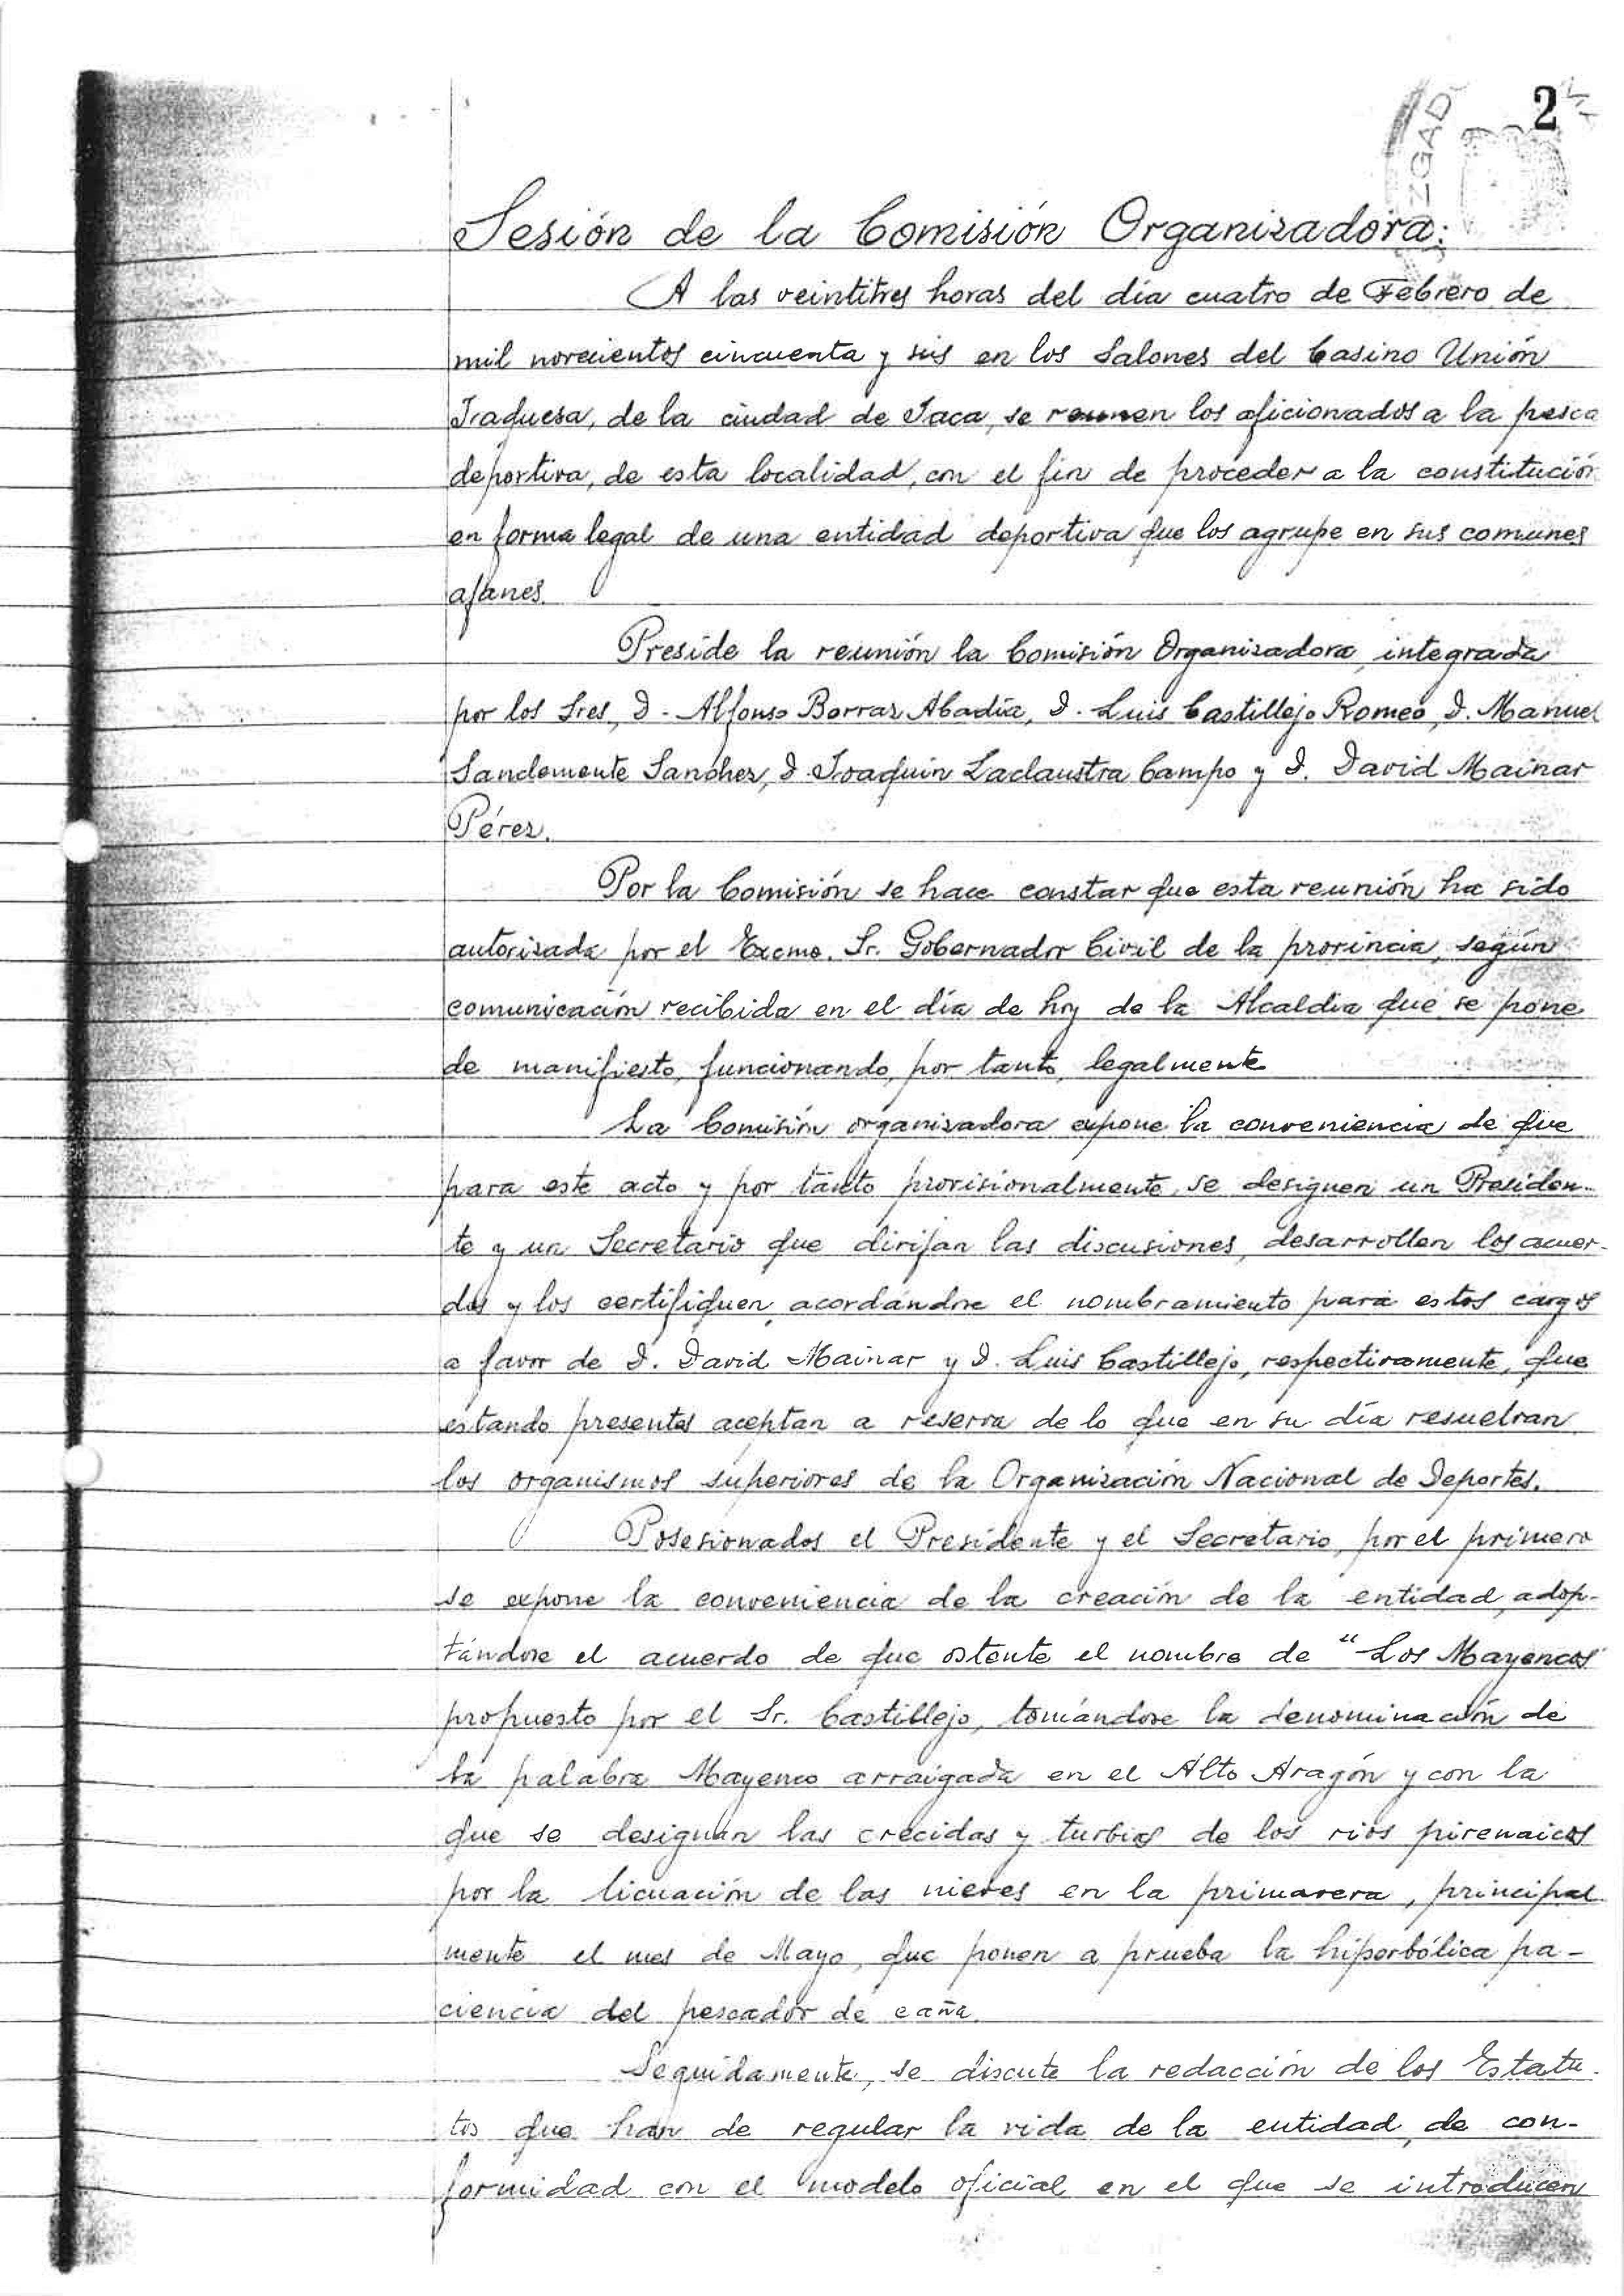 2
ZGAD
Sesión de la Comisión Organizadora:
A las veintitres horas del día cuatro de Febrero de
mil novecientos cincuenta y seis en los Salones del Casino Unión
Jaquesa, de la ciudad de Jaca, se reunen los aficionados a la pesca
deportiva, de esta localidad, con el fin de proceder a la constitución
en forma legal de una entidad deportiva que los agrupe en sus comunes
afanes.
Preside la reunión la Comisión Organizadora, integrada
por los Sres, D. Alfonso Borraz Abadía, D. Luis Castillejo Romeo, D. Manuel
Sandemente Sanchez, D. Joaquín Laclaustra Campo y D. David Mainar
Pérez.
Por la Comisión se hace constar que esta reunión ha sido
autorizada por el Excmo. Sr. Gobernador Civil de la provincia, según
comunicación recibida en el día de hoy de la Alcaldía que se pone
de manifiesto, funcionando, por tanto, legalmente
La Comisión organizadora expone la conveniencia de que
para este acto y por tanto provisionalmente, se designen un Presiden-
te y un Secretario que dirijan las discusiones, desarrollen los acuer-
dos y los certifiquen, acordándose el nombramiento para estos cargos
a favor de D. David Mainar y D. Luis Castillejo, respectivamente, que
estando presentes aceptan a reserva de lo que en su día resuelvan
los organismos superiores de la Organización Nacional de Deportes.
Posesionados el Presidente y el Secretario, por el primero
se expone la conveniencia de la creación de la entidad, adop-
tándose el acuerdo de que ostente el nombre de "Los Mayencos"
propuesto por el Sr. Castillejo, tomándose la denominación de
la palabra Mayenco arraigada en el Alto Aragón y con la
que se designan las crecidas y turbias de los rios pirenaicos
por la licuación de las nieves en la primavera, principal
mente el mes de Mayo, que ponen a prueba la hiperbólica pa-
ciencia del pescador de caña.
Seguidamente, se discute la redacción de los Estatu-
tos que han de regular la vida de la entidad, de con-
formidad con el modelo oficial en el que se introducen